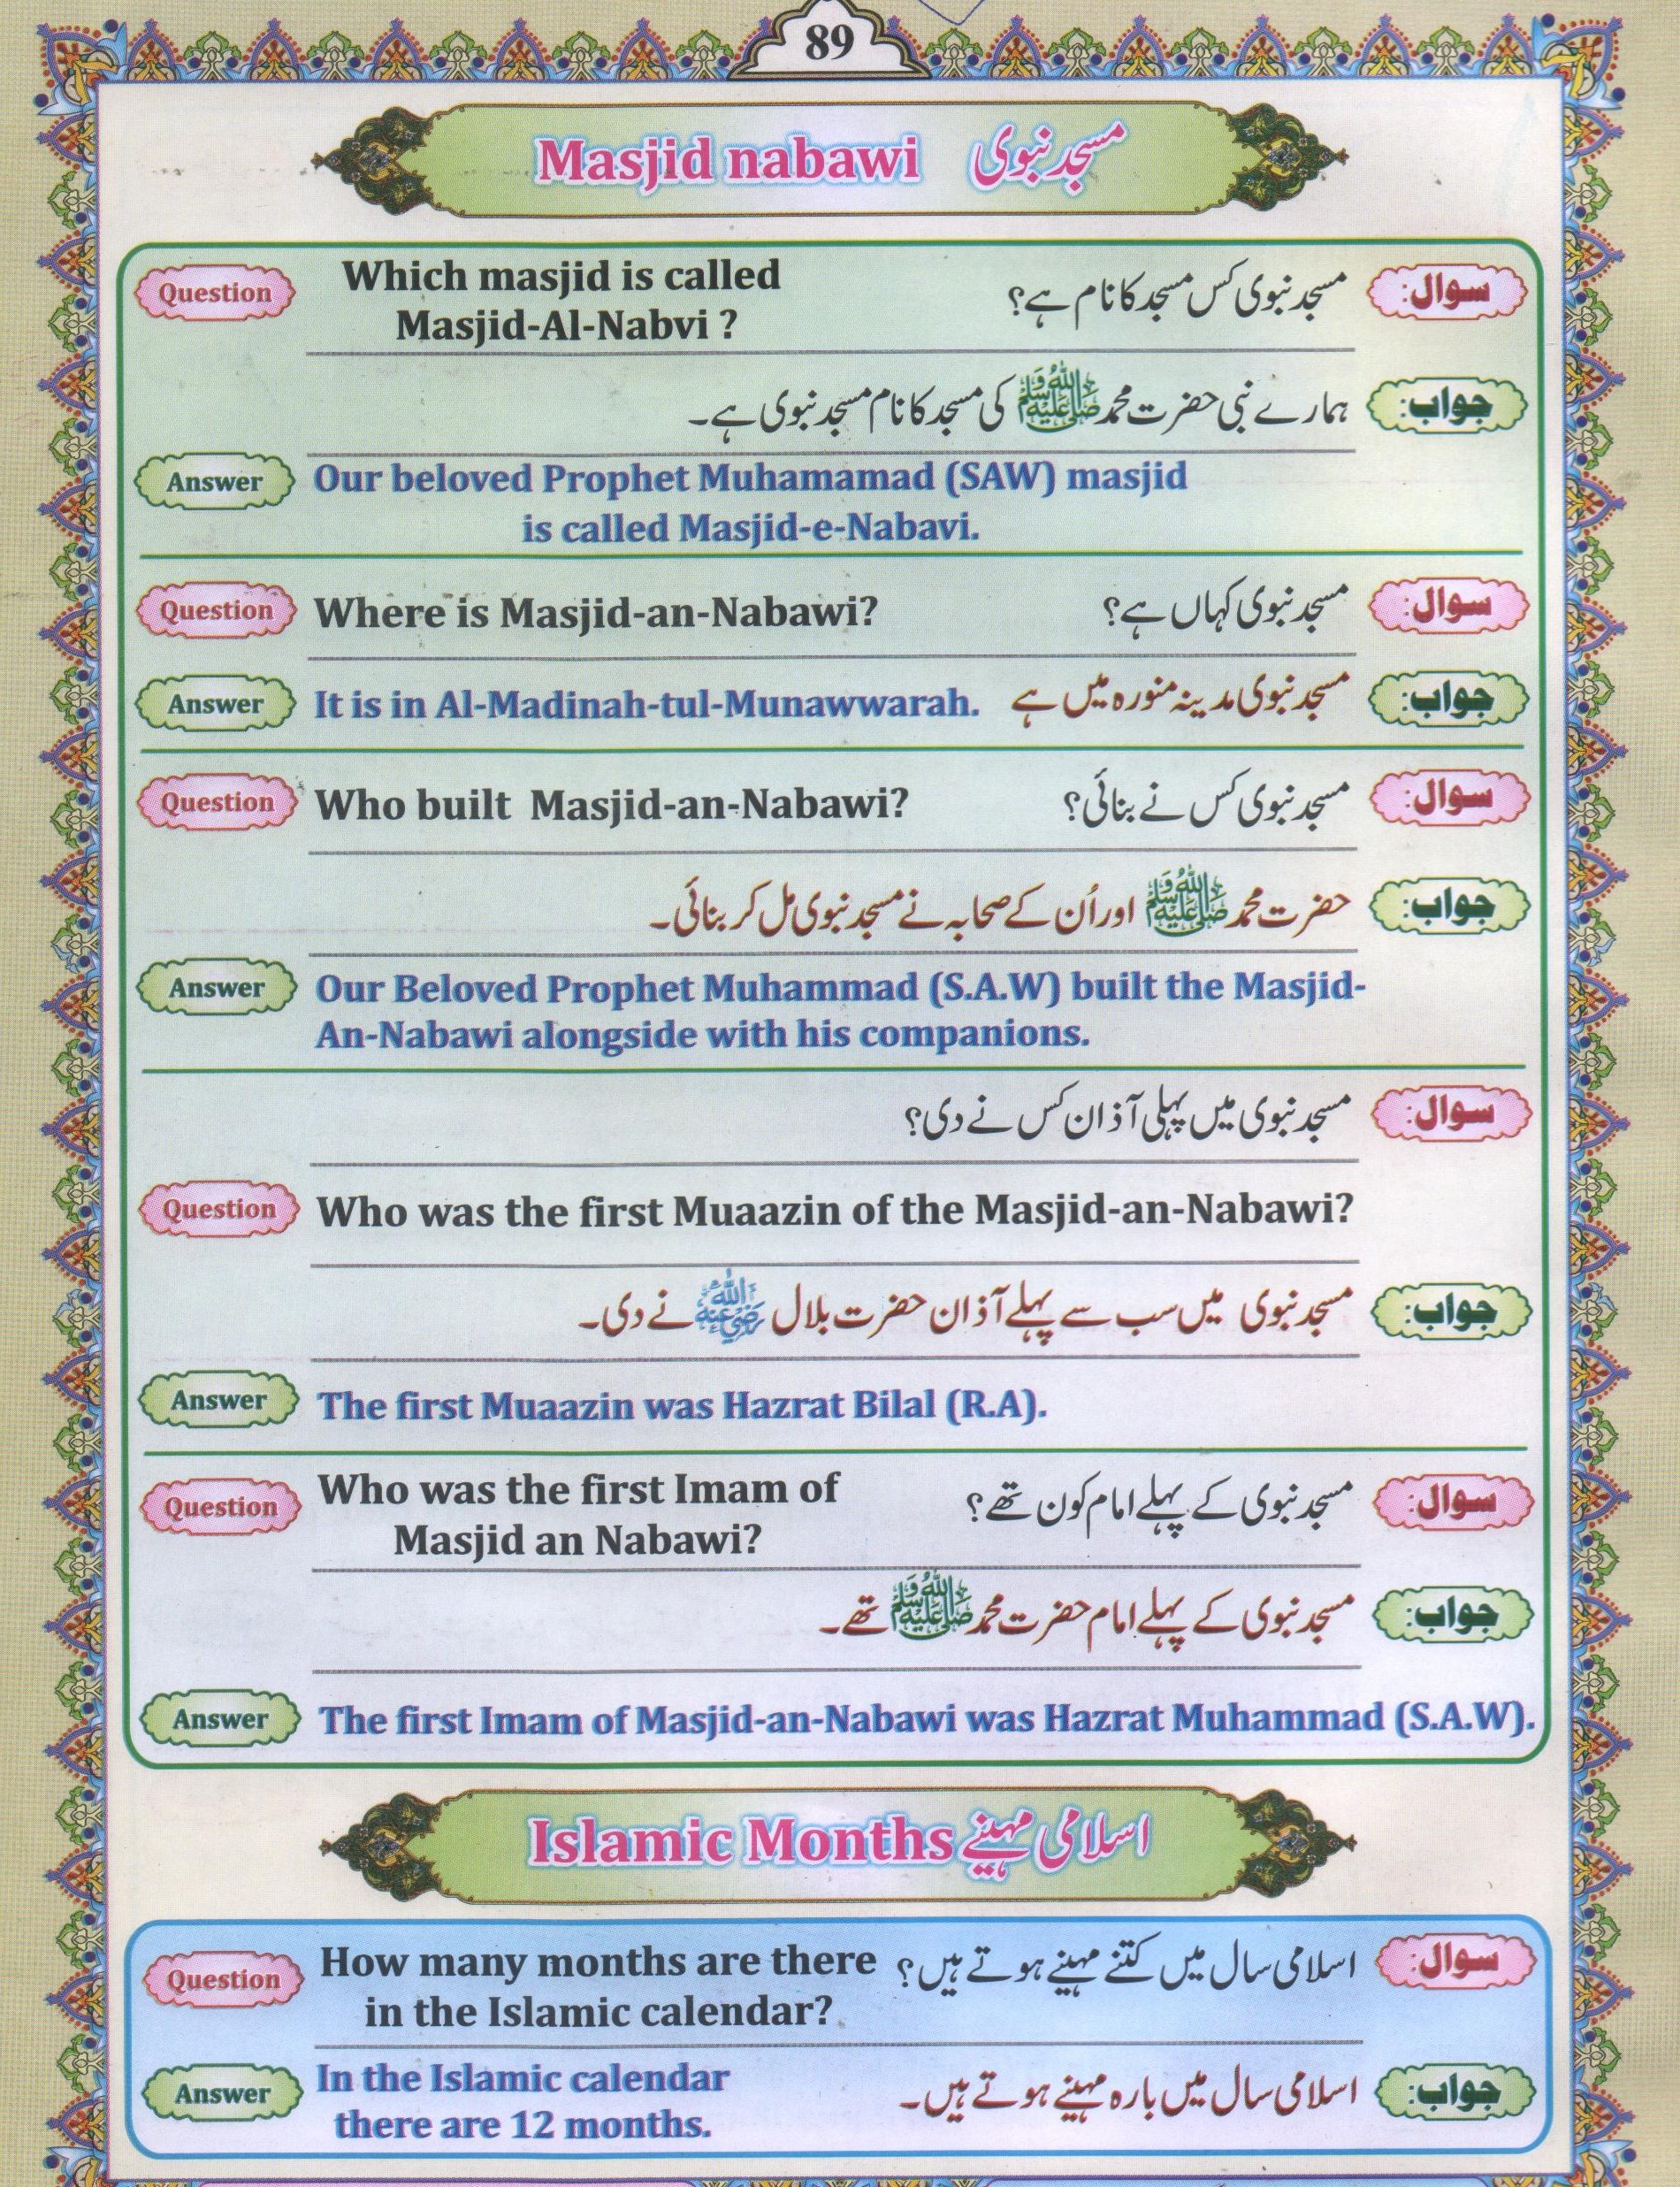 89
Masjid nabawi مسجد نبوی
Question Which masjid is called مسجد نبوی کس مسجد کا نام ہے؟ سوال:
Masjid-Al-Nabvi ?
ہمارے نبی حضرت محمد ﷺ کی مسجد کا نام مسجد نبوی ہے۔ جواب:
Answer Our beloved Prophet Muhamamad (SAW) masjid
is called Masjid-e-Nabavi.
Question Where is Masjid-an-Nabawi? مسجد نبوی کہاں ہے؟ سوال:
Answer It is in Al-Madinah-tul-Munawwarah. مسجد نبوی مدینہ منورہ میں ہے جواب:
Question Who built Masjid-an-Nabawi? مسجد نبوی کس نے بنائی؟ سوال:
حضرت محمد ﷺ اور اُن کے صحابہ نے مسجد نبوی مل کر بنائی۔ جواب:
Answer Our Beloved Prophet Muhammad (S.A.W) built the Masjid-
An-Nabawi alongside with his companions.
مسجد نبوی میں پہلی آذان کس نے دی؟ سوال:
Question Who was the first Muaazin of the Masjid-an-Nabawi?
مسجد نبوی میں سب سے پہلے آذان حضرت بلال رضی اللہ عنہ نے دی۔ جواب:
Answer The first Muaazin was Hazrat Bilal (R.A).
Question Who was the first Imam of مسجد نبوی کے پہلے امام کون تھے؟ سوال:
Masjid an Nabawi?
مسجد نبوی کے پہلے امام حضرت محمد ﷺ تھے۔ جواب:
Answer The first Imam of Masjid-an-Nabawi was Hazrat Muhammad (S.A.W).
Islamic Months اسلامی مہینے
Question How many months are there اسلامی سال میں کتنے مہینے ہوتے ہیں؟ سوال:
in the Islamic calendar?
Answer In the Islamic calendar اسلامی سال میں بارہ مہینے ہوتے ہیں۔ جواب:
there are 12 months.